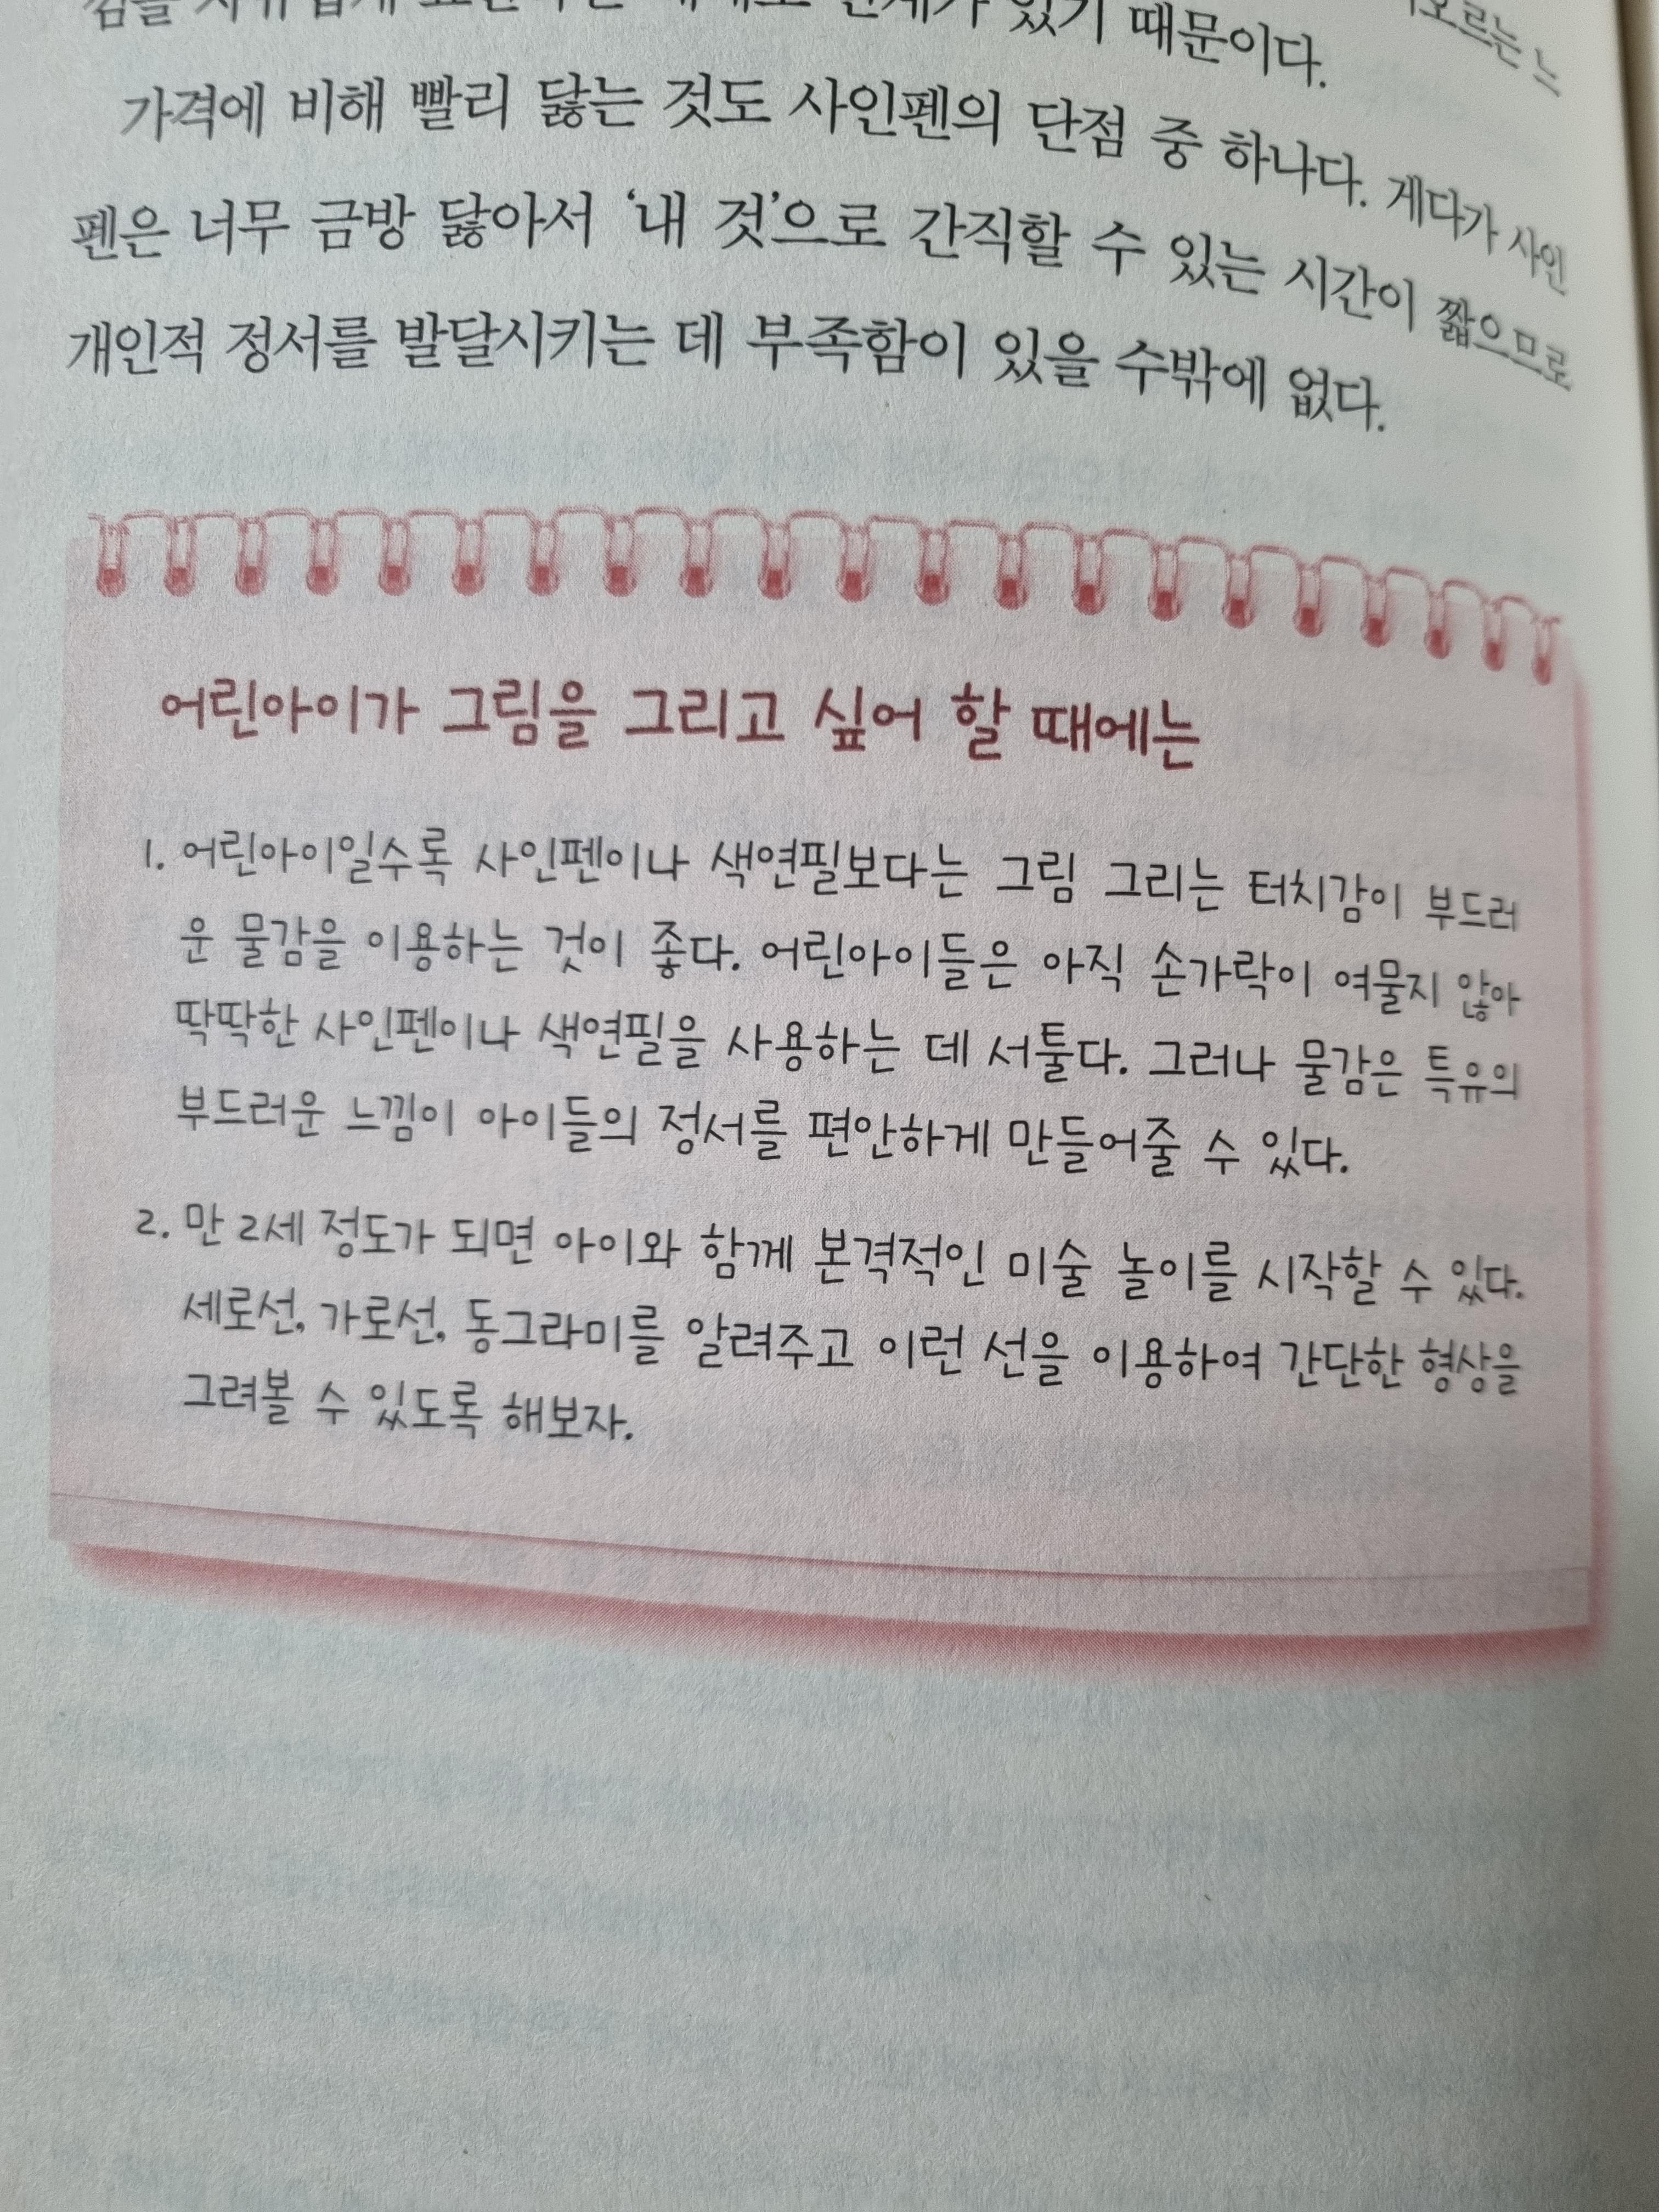 있기 때문이다.
가격에 비해 빨리 닳는 것도 사인펜의 단점 중 하나다. 게다가 사인
펜은 너무 금방 닳아서 ‘내 것’으로 간직할 수 있는 시간이 짧으므로
개인적 정서를 발달시키는 데 부족함이 있을 수밖에 없다.
어린아이가 그림을 그리고 싶어 할 때에는
1. 어린아이일수록 사인펜이나 색연필보다는 그림 그리는 터치감이 부드러
운 물감을 이용하는 것이 좋다. 어린아이들은 아직 손가락이 여물지 않아
딱딱한 사인펜이나 색연필을 사용하는 데 서툴다. 그러나 물감은 특유의
부드러운 느낌이 아이들의 정서를 편안하게 만들어줄 수 있다.
2. 만 2세 정도가 되면 아이와 함께 본격적인 미술 놀이를 시작할 수 있다.
세로선, 가로선, 동그라미를 알려주고 이런 선을 이용하여 간단한 형상을
그려볼 수 있도록 해보자.